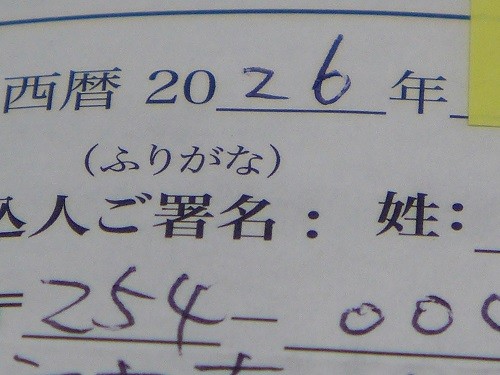 西暦 2026年
(ふりがな)
込人ご署名： 姓：
254-00